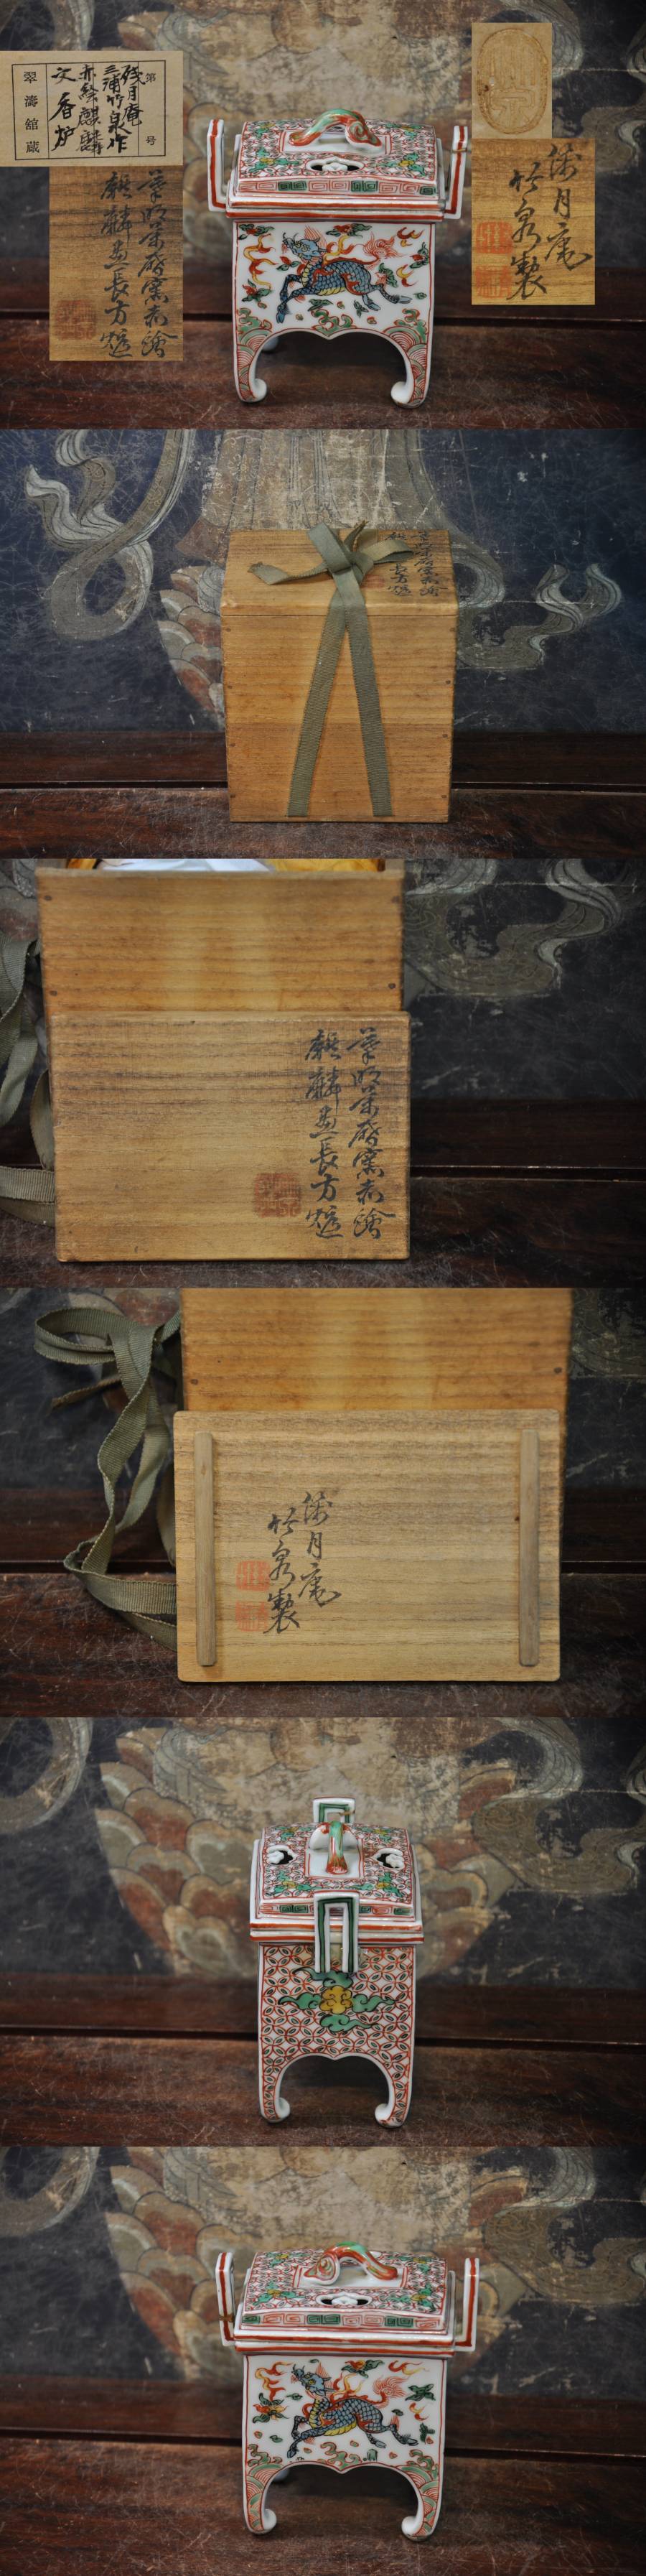 第 号
残月庵
三浦竹泉作
赤絵麒麟
文香炉
翠濤館蔵
残月庵
竹泉製
明萬暦窯赤繪
麒麟画長方爐
明萬暦窯赤繪
麒麟画長方爐
明萬暦窯赤繪
麒麟画長方爐
残月庵
竹泉製